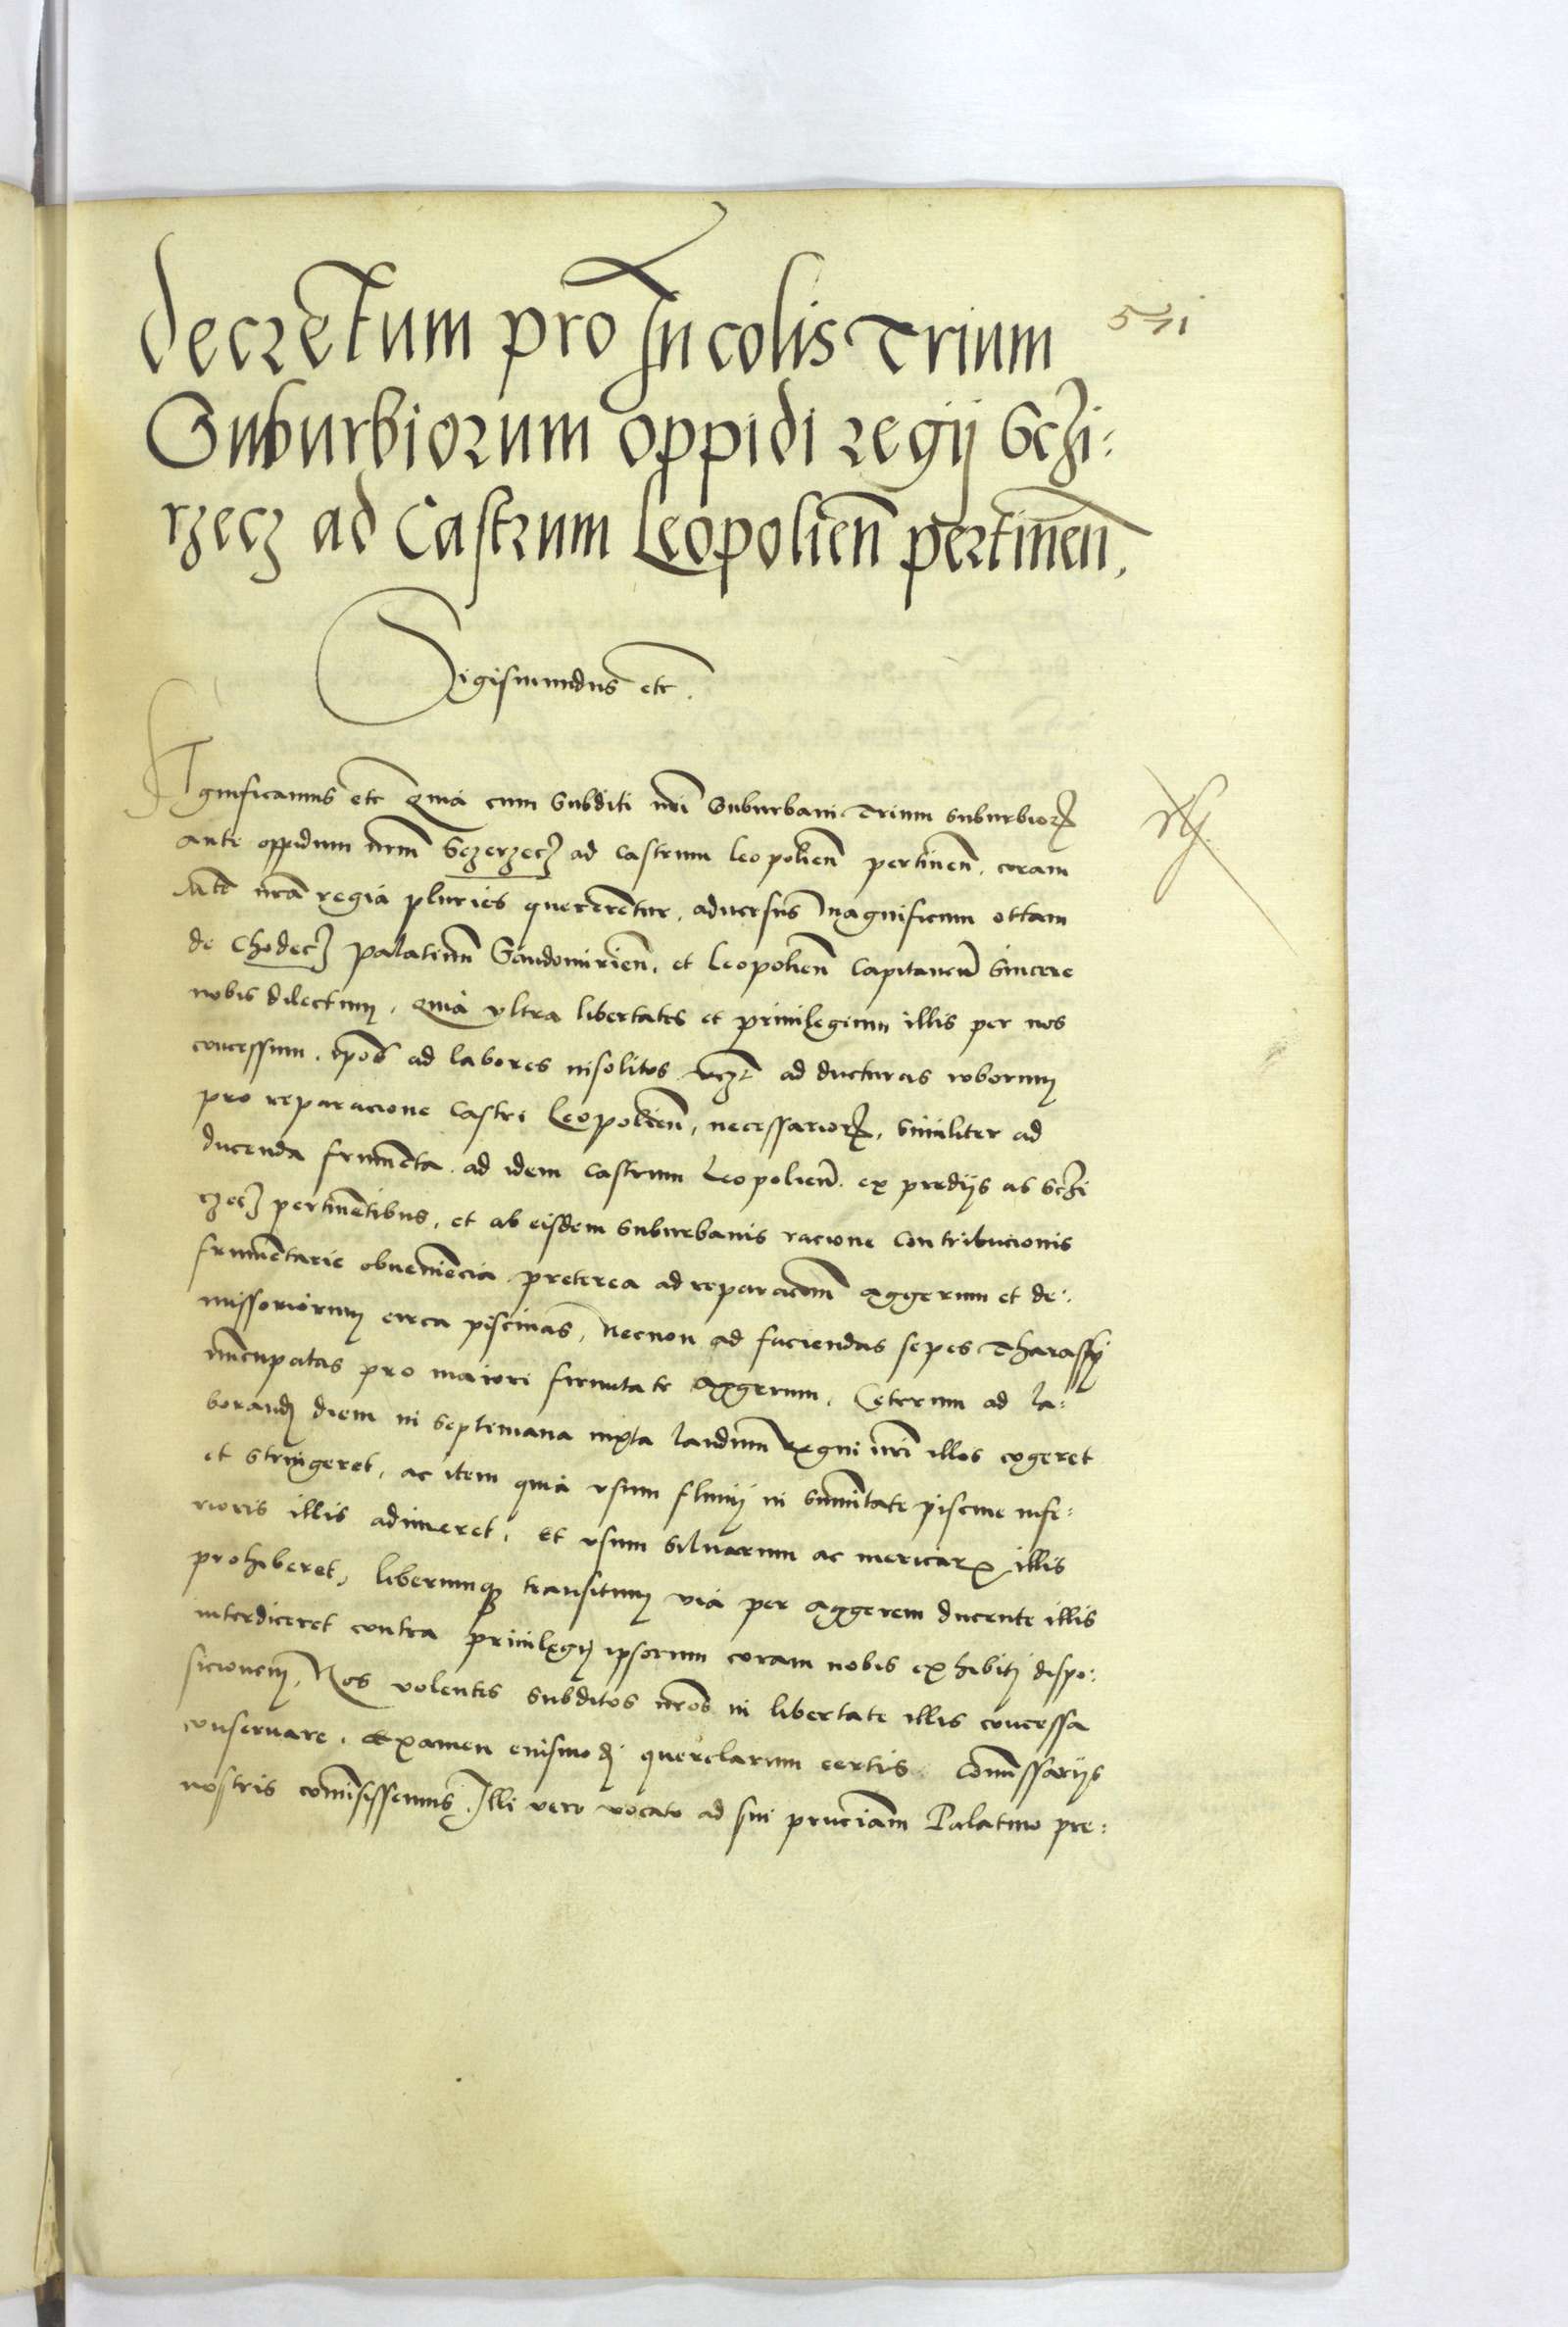 decretum pro Incolis Trium
Suburbiorum oppidi regij Sczi:
rzecz ad Castrum Leopolien̄ pertinen̄.
571
Sigismundus etc.
Significamus etc Quia cum Subditi nr̄i Suburbani Trium suburbioꝝ
ante oppidum nr̄m Sczerzecz ad Castrum Leopolien̄ pertinen̄, coram
M̄te nr̄a regia pluries quererentur, aduersus Magnificum ottam
de Chodecz palatinū Sandomirien̄, et Leopolien̄ Capitaneū Sincere
nobis dilectum, Quia vltra libertates et priuilegium illis per nos
concessum, ip̄os ad labores insolitos vcz ad ducturas roborum
pro reparacione Castri Leopolien̄, necessarioꝝ, similiter ad
ducenda frumēta ad idem Castrum Leopolien̄ ex predijs ab Sczi
rzecz pertinētibus, et ab eisdem suburbanis racione Contribucionis
frumētarie obueniēcia preterea ad reparacōm Aggerum et de:
missoriorum circa piscinas, Necnon ad faciendas sepes Tharassÿ
nūcupatas pro maiori firmitate Aggerum, Ceterum ad la:
borandum diem in septimana iuxta laudum Regni nr̄i illos cogeret
et stringeret, ac item quia vsum fluuij in sūmitate piscine infe:
rioris illis adimeret, Et vsum siluarum ac mericarꝝ illis
prohiberet, liberumqꝫ transitum via per Aggerem ducente illis
interdiceret contra priuilegij ipsorum coram nobis exhibiti dispo:
sicionem, Nos volentes subditos nr̄os in libertate illis concessa
conseruare, Examen eiusmodi querelarum certis Comīssarijs
nostris comīsissemus, Illi vero vocato ad sui prn̄ciam Palatino pre: